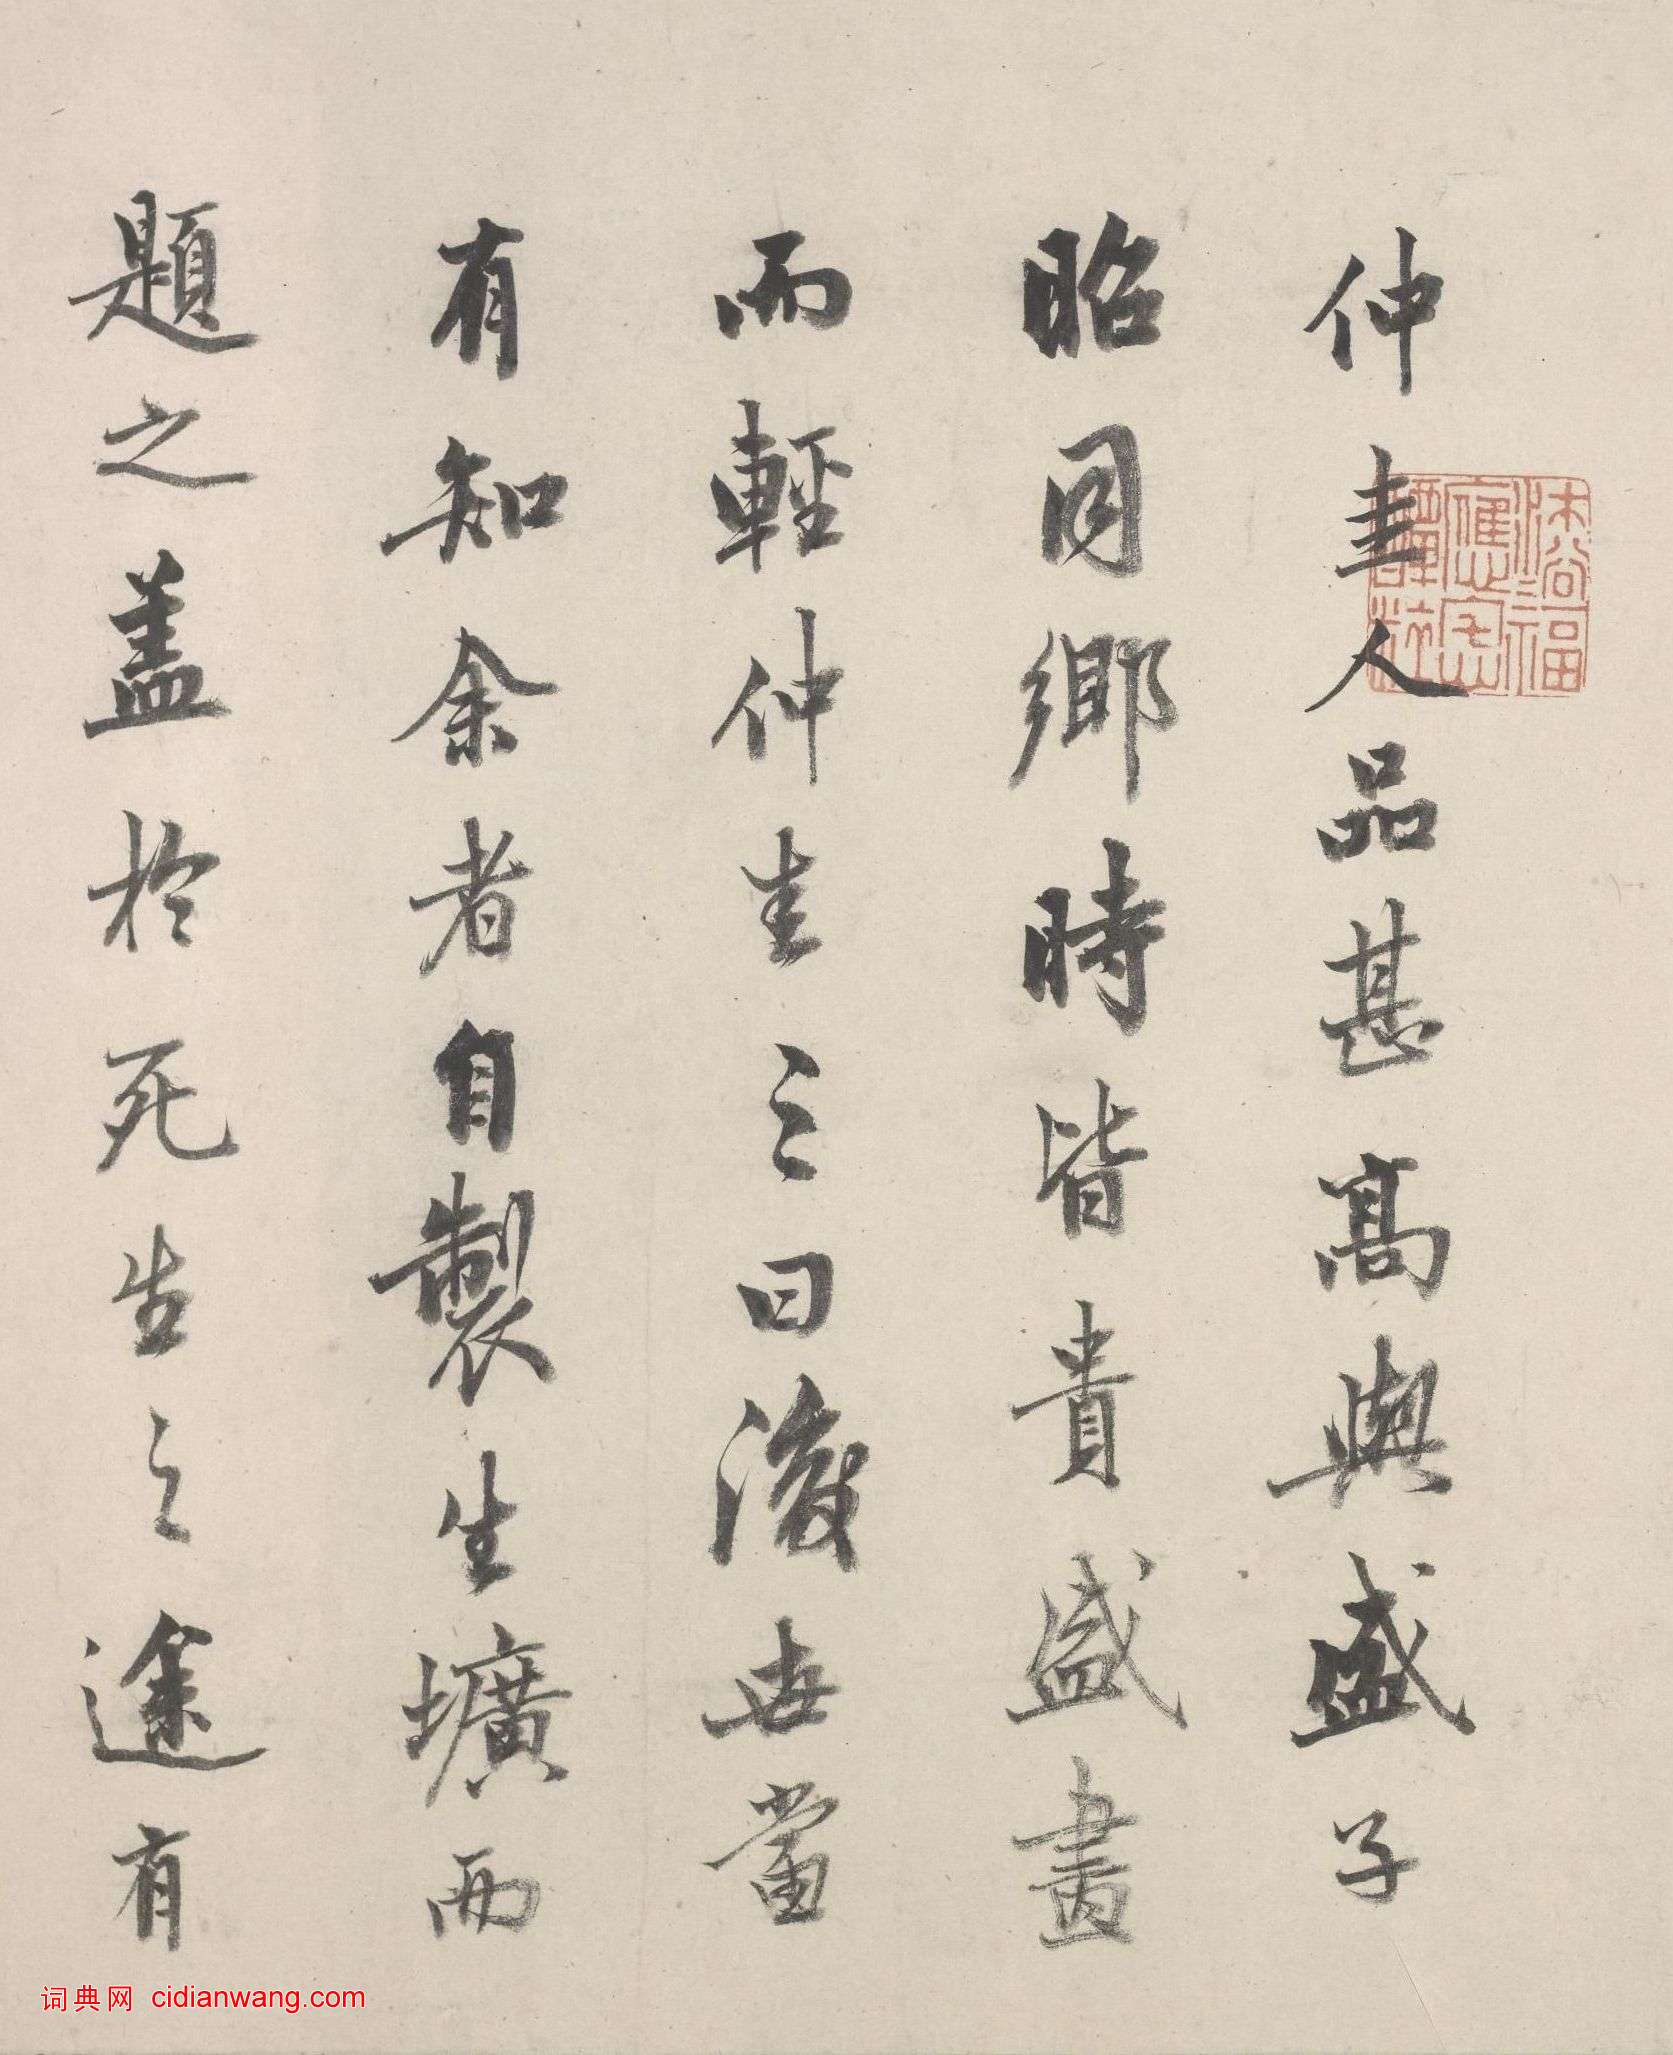 仲圭人品甚高與盛子
昭同鄉時皆貴盛畫
而輕仲圭之曰後世當
有知余者自製生壙而
題之盖於死生之途有
词典网 cidianwang.com